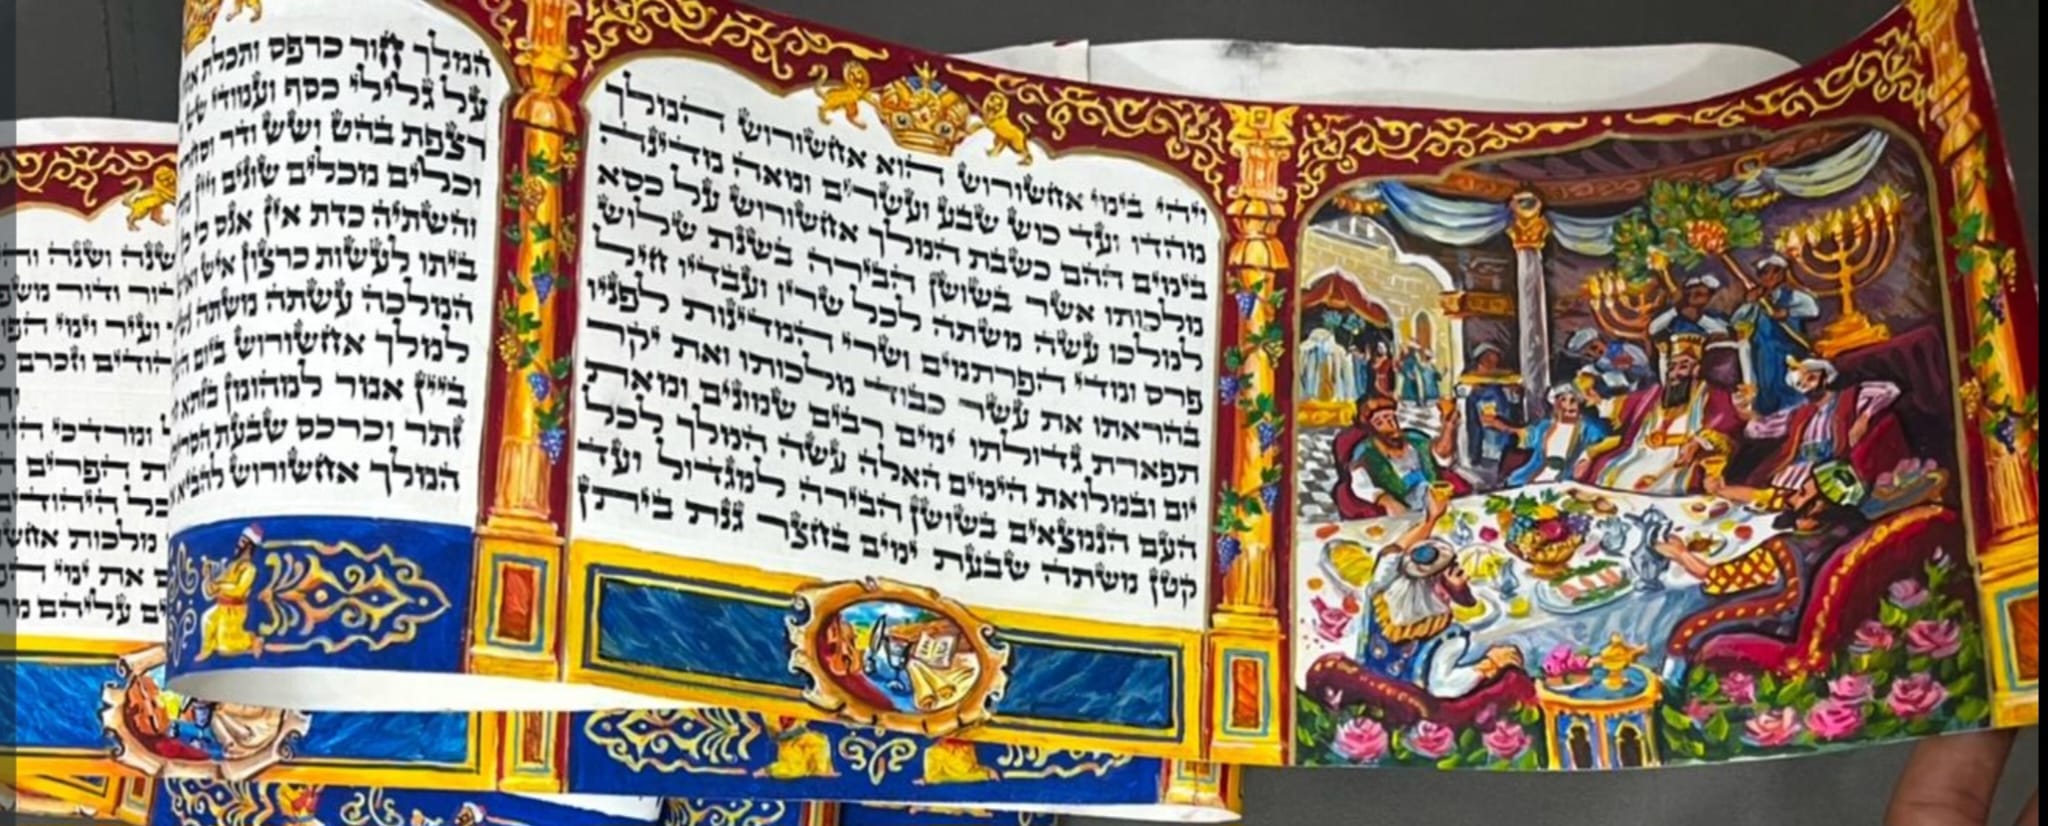 ויהי בימי אחשורוש הוא אחשורוש המלך
מהדו ועד כוש שבע ועשרים ומאה מדינה
בימים ההם כשבת המלך אחשורוש על כסא
מלכותו אשר בשושן הבירה בשנת שלוש
למלכו עשה משתה לכל שריו ועבדיו חיל
פרס ומדי הפרתמים ושרי המדינות לפניו
בהראתו את עשר כבוד מלכותו ואת יקר
תפארת גדולתו ימים רבים שמונים ומאת
יום ובמלואת הימים האלה עשה המלך לכל
העם הנמצאים בשושן הבירה למגדול ועד
קטן משתה שבעת ימים בחצר גנת ביתן
המלך חור כרפס ותכלת
על גלילי כסף ועמודי שש
רצפת בהט ושש ודר
וכלים מכלים שונים ויין
והשתיה כדת אין אנס כי
ביתו לעשות כרצון איש
המלכה עשתה משתה
למלך אחשורוש ביום
ביין אמר למהומן בזתא
זתר וכרכס שבעת
המלך אחשורוש להביא
שנה ושנה
ודור
ועיר וימי
וזכרם
ומרדכי
הפרים
כל היהודים
מלכות
את ימי
עליהם